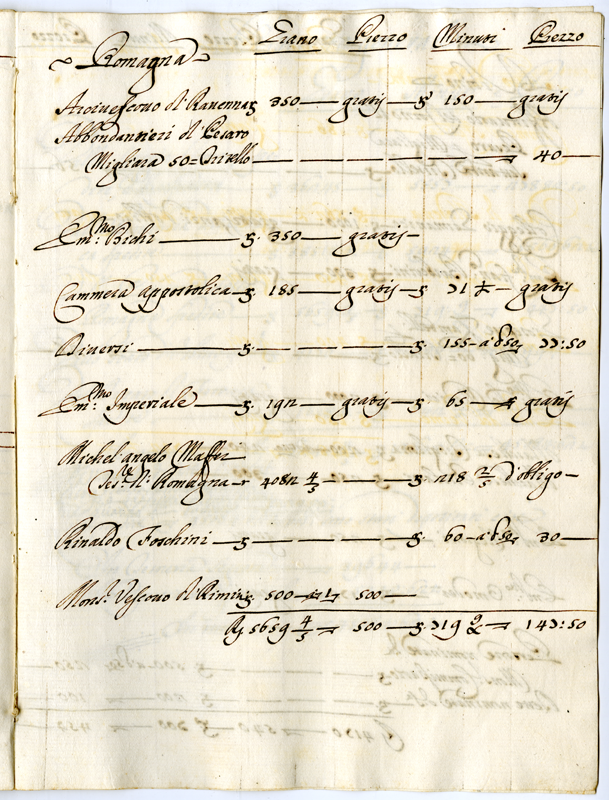 Grano Prezzo Minuti Prezzo
~ Romagna ~
Arciuescouo di Rauenna g 350 — gratis — g 150 — gratis
Abbondantieri di Pesaro
Migliara 50 = — — — — — = 40
Em:mo Bichi — g. 350 — gratis —
Cammera Appostolica — g. 185 — gratis — g. 31 — gratis
Diuersi — g. — — — g. 155 — 33:50
Em:mo Imperiale — g. 192 — gratis — g. 65 — gratis
Michel angelo Maffei
Tes:re di Romagna — 4082 4/5 — — — g. 218 2/5 d'obligo —
Rinaldo Foschini — g — — — g. 60 — 30 —
Mons:r Vescouo di Rimini g. 500 — 1 — 500 —
5659 4/5 = 500 — g. 319 = 143:50